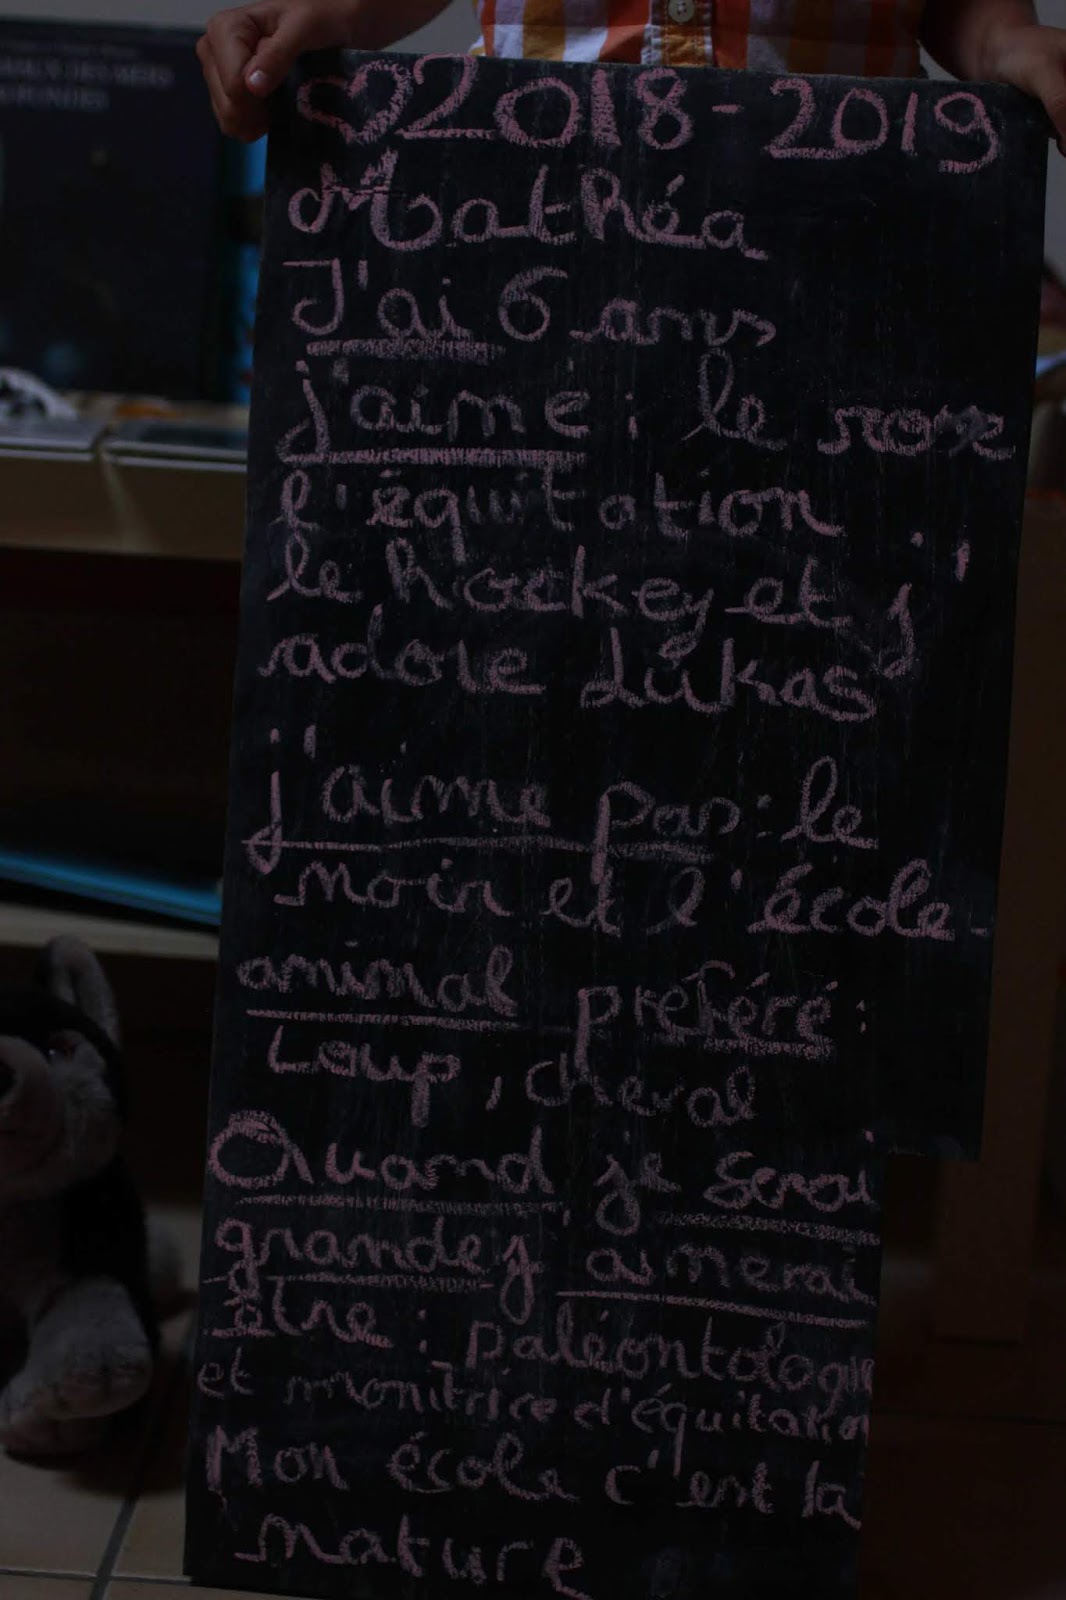 ♡2018-2019
Mathéa
J'ai 6 ans
j'aime: le rose
l'équitation
le hockey et j'
adore Lukas
j'aime pas: le
noir et l'école-
animal préféré:
Loup, cheval
Quand je serai
grande j'aimerai
être: paléontologue
et monitrice d'équitation
Mon école c'est la
nature